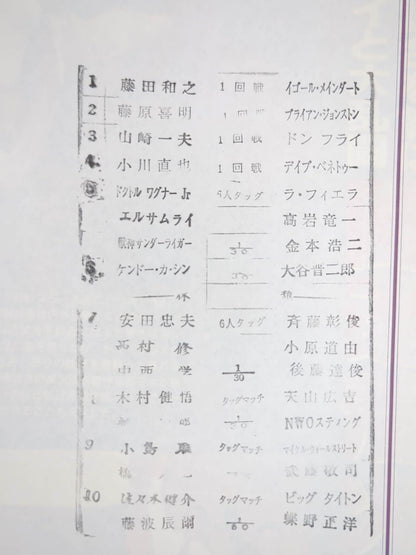 1 藤田和之 1回戦 イゴール・メインダート
2 藤原喜明 1回戦 ブライアン・ジョンストン
3 山崎一夫 1回戦 ドン フライ
4 小川直也 1回戦 デイブ・ベネトゥー
5 ドクトル ワグナー Jr 6人タッグ ラ・フィエラ
エルサムライ 高岩竜一
獣神サンダーライガー 1/30 金本浩二
6 ケンドー・カ・シン 大谷晋二郎
休
7 安田忠夫 6人タッグ 斉藤彰俊
西村 修 小原道由
中西 学 1/30 後藤達俊
木村健悟 タッグマッチ 天山広吉
1/60 NWOスティング
9 小島 聡 タッグマッチ マイケル・ウォールストリート
橋 武藤敬司
10 佐々木健介 タッグマッチ ビッグ タイトン
藤波辰爾 1/60 蝶野正洋